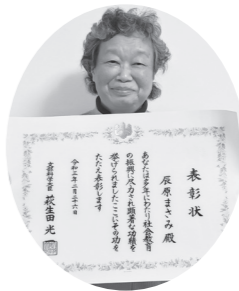 表彰状
辰原まさみ殿
あなたは多年にわたり社会教育
の振興に尽力され顕著な功績を
挙げられましたここにその功を
たたえ表彰します
令和三年二月二十六日
文部科学大臣 萩生田光一